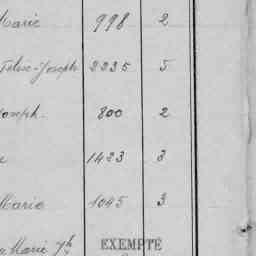 Marie 998 2
Felix-Joseph 2235 5
Joseph 800 2
1423 3
Marie 1045 3
Marie Jh EXEMPTÉ